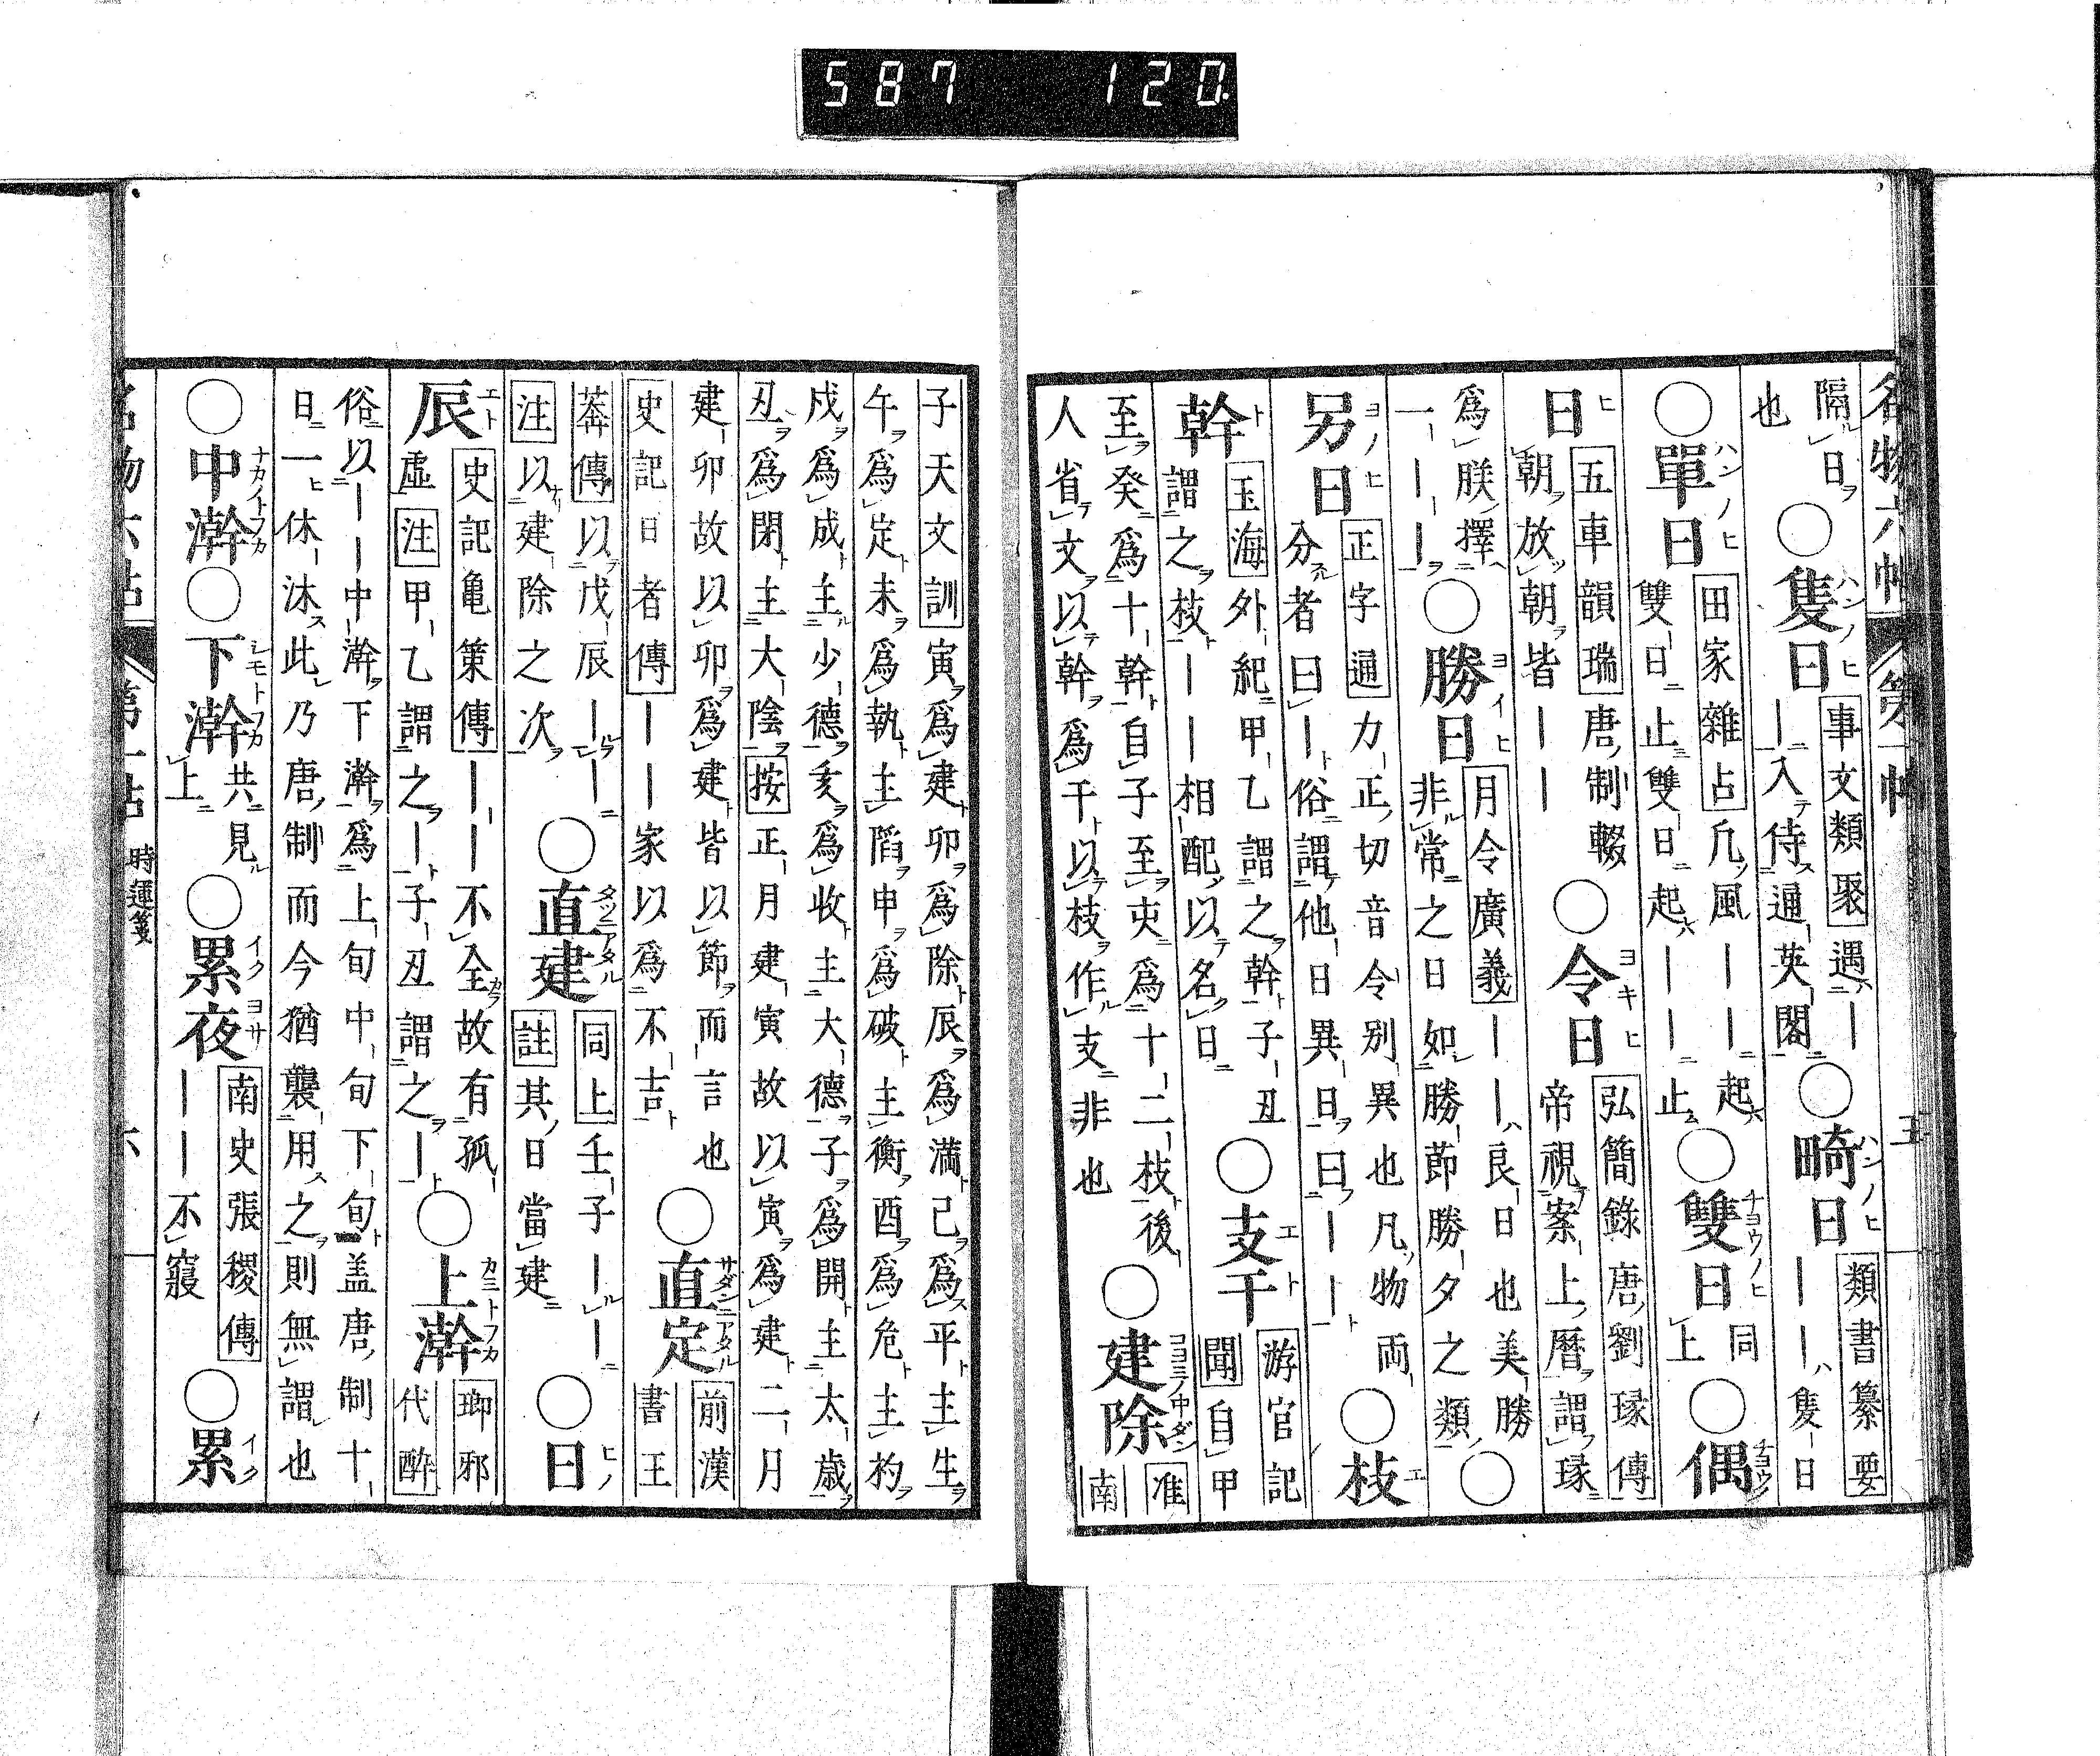 587 120.
名物六帖 第一帖 五
隔日 ○隻日 ハンノヒ 事文類聚 遇一入侍通英閣 ○畸日 ハンノヒ 類書纂要 ーー隻日
也
○單日 ハンノヒ 田家雜占 凡風ーー起雙日止雙日起ーー止 ○雙日 チヨウノヒ 同上 ○偶
日 ヒ 五車韻瑞 唐制輟朝放朝皆ーー ○令日 ヨキヒ 弘簡錄唐劉瑑傳 帝視案上曆謂瑑
爲朕擇一ーー ○勝日 ヨイヒ 月令廣義 ーー良日也美勝非常之日如勝節勝夕之類 ○
另日 ヨノヒ 正字通 力正切音令別異也凡物両分者曰ー俗謂他日異日曰ーー ○枝 エ
幹 ト 玉海 外紀甲乙謂之幹子丑謂之枝ーー相配以名日 ○支干 エト 游官記聞 自甲
至癸爲十幹自子至亥爲十二枝後人省文以幹爲干以枝作支非也 ○建除 ヨヨミノ中ダン 准南
子天文訓 寅爲建卯爲除辰爲満巳爲平主生
午爲定未爲執主陷申爲破主衡酉爲危主杓
戍爲成主少德亥爲收主大德子爲開主太歲
丑爲閉主大陰 按 正月建寅故以寅爲建二月
建卯故以卯爲建皆以節而言也 ○直定 サダンニアタル 前漢書王
史記日者傳 ーー家以爲不吉
莽傳 以戊辰ーー 注 以建除之次 ○直建 タツニアタル 同上 壬子ーー 註 其日當建 ○日 ヒノ
辰 エト 史記亀策傳 ーー不全故有孤虛 注 甲乙謂之ー子丑謂之ー ○上澣 カミトフカ 瑯邪代醉
俗以ーー中澣下澣爲上旬中旬下旬盖唐制十
日一休沐此乃唐制而今猶襲用之則無謂也
○中澣 ナカノトフカ ○下澣 シモトフカ 共見上 ○累夜 イクヨサ 南史張稷傳 ーー不寢 ○累 イク
名物六帖 第一帖 時運箋 六